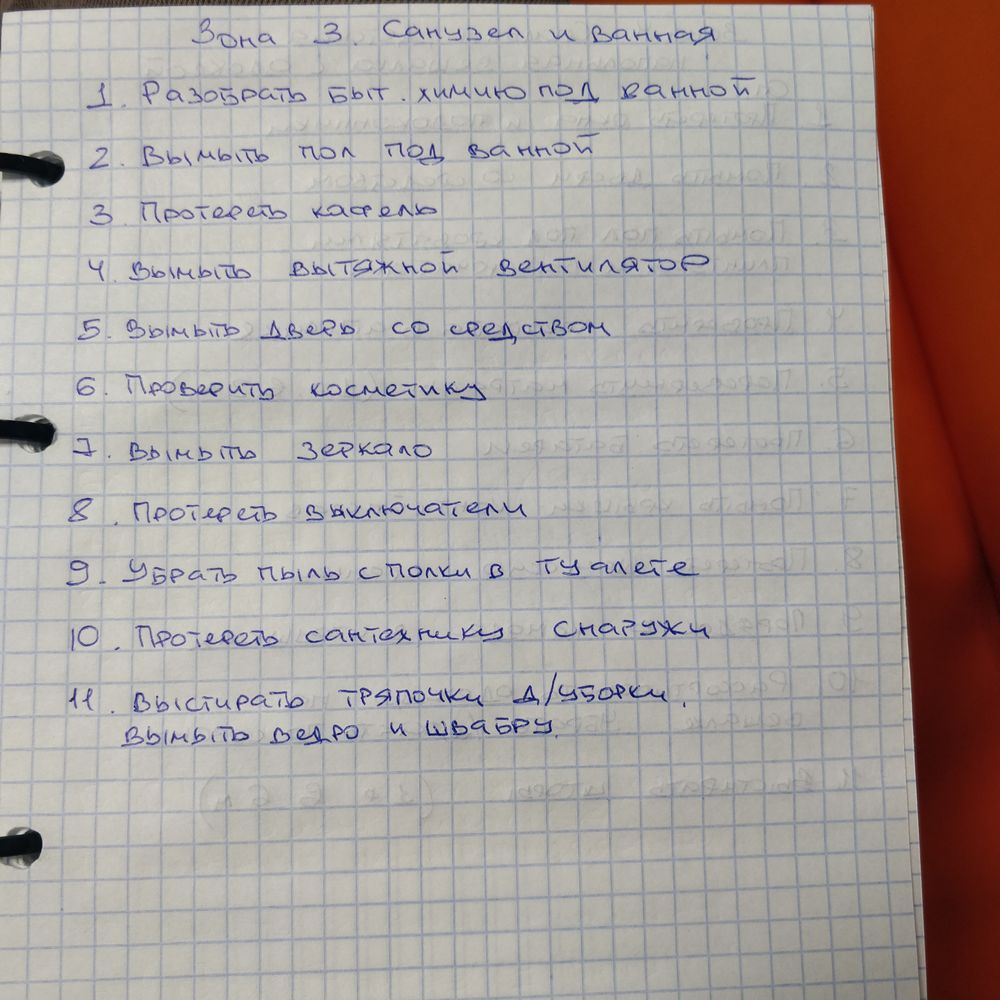 Зона 3. Санузел и ванная
1. Разобрать быт. химию под ванной
2. Вымыть пол под ванной
3. Протереть кафель
4. Вымыть вытяжной вентилятор
5. Вымыть дверь со средством
6. Проверить косметику
7. Вымыть зеркало
8. Протереть выключатели
9. Убрать пыль с полки в туалете
10. Протереть сантехнику снаружи
11. Выстирать тряпочки д/уборки.
Вымыть ведро и швабру.